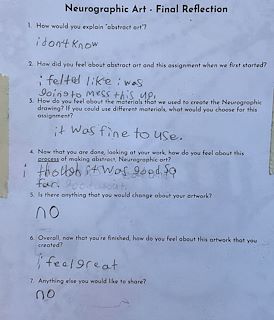 Neurographic Art - Final Reflection
1. How would you explain "abstract art"?
i don't know
2. How did you feel about abstract art and this assignment when we first started?
i felted like i was
going to mess this up.
3. How do you feel about the materials that we used to create the Neurographic
drawing? If you could use different materials, what would you choose for this
assignment?
it was fine to use.
4. Now that you are done, looking at your work, how do you feel about this
process of making abstract, Neurographic art?
i though it was good so
far.
5. Is there anything that you would change about your artwork?
no
6. Overall, now that you're finished, how do you feel about this artwork that you
created?
i feel great
7. Anything else you would like to share?
no